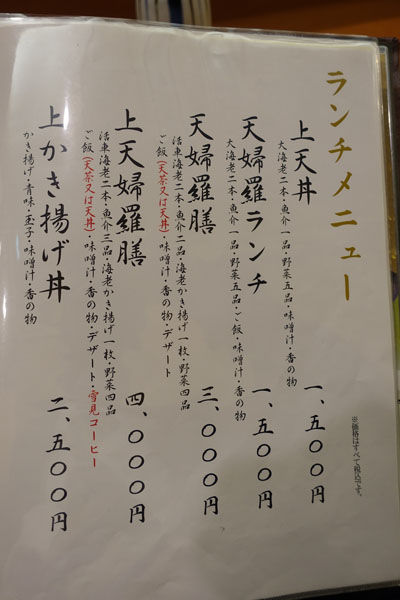 ランチメニュー
※価格はすべて税込です。
上天丼
大海老二本・魚介一品・野菜五品・味噌汁・香の物
一、五〇〇円
天婦羅ランチ
大海老二本・魚介一品・野菜五品・ご飯・味噌汁・香の物
一、五〇〇円
天婦羅膳
活車海老二本・魚介二品・海老かき揚げ一枚・野菜四品
ご飯(天茶又は天丼)・味噌汁・香の物・デザート
三、〇〇〇円
上天婦羅膳
活車海老二本・魚介三品・海老かき揚げ一枚・野菜四品
ご飯(天茶又は天丼)・味噌汁・香の物・デザート・雪見コーヒー
四、〇〇〇円
上かき揚げ丼
かき揚げ・青味・玉子・味噌汁・香の物
二、五〇〇円